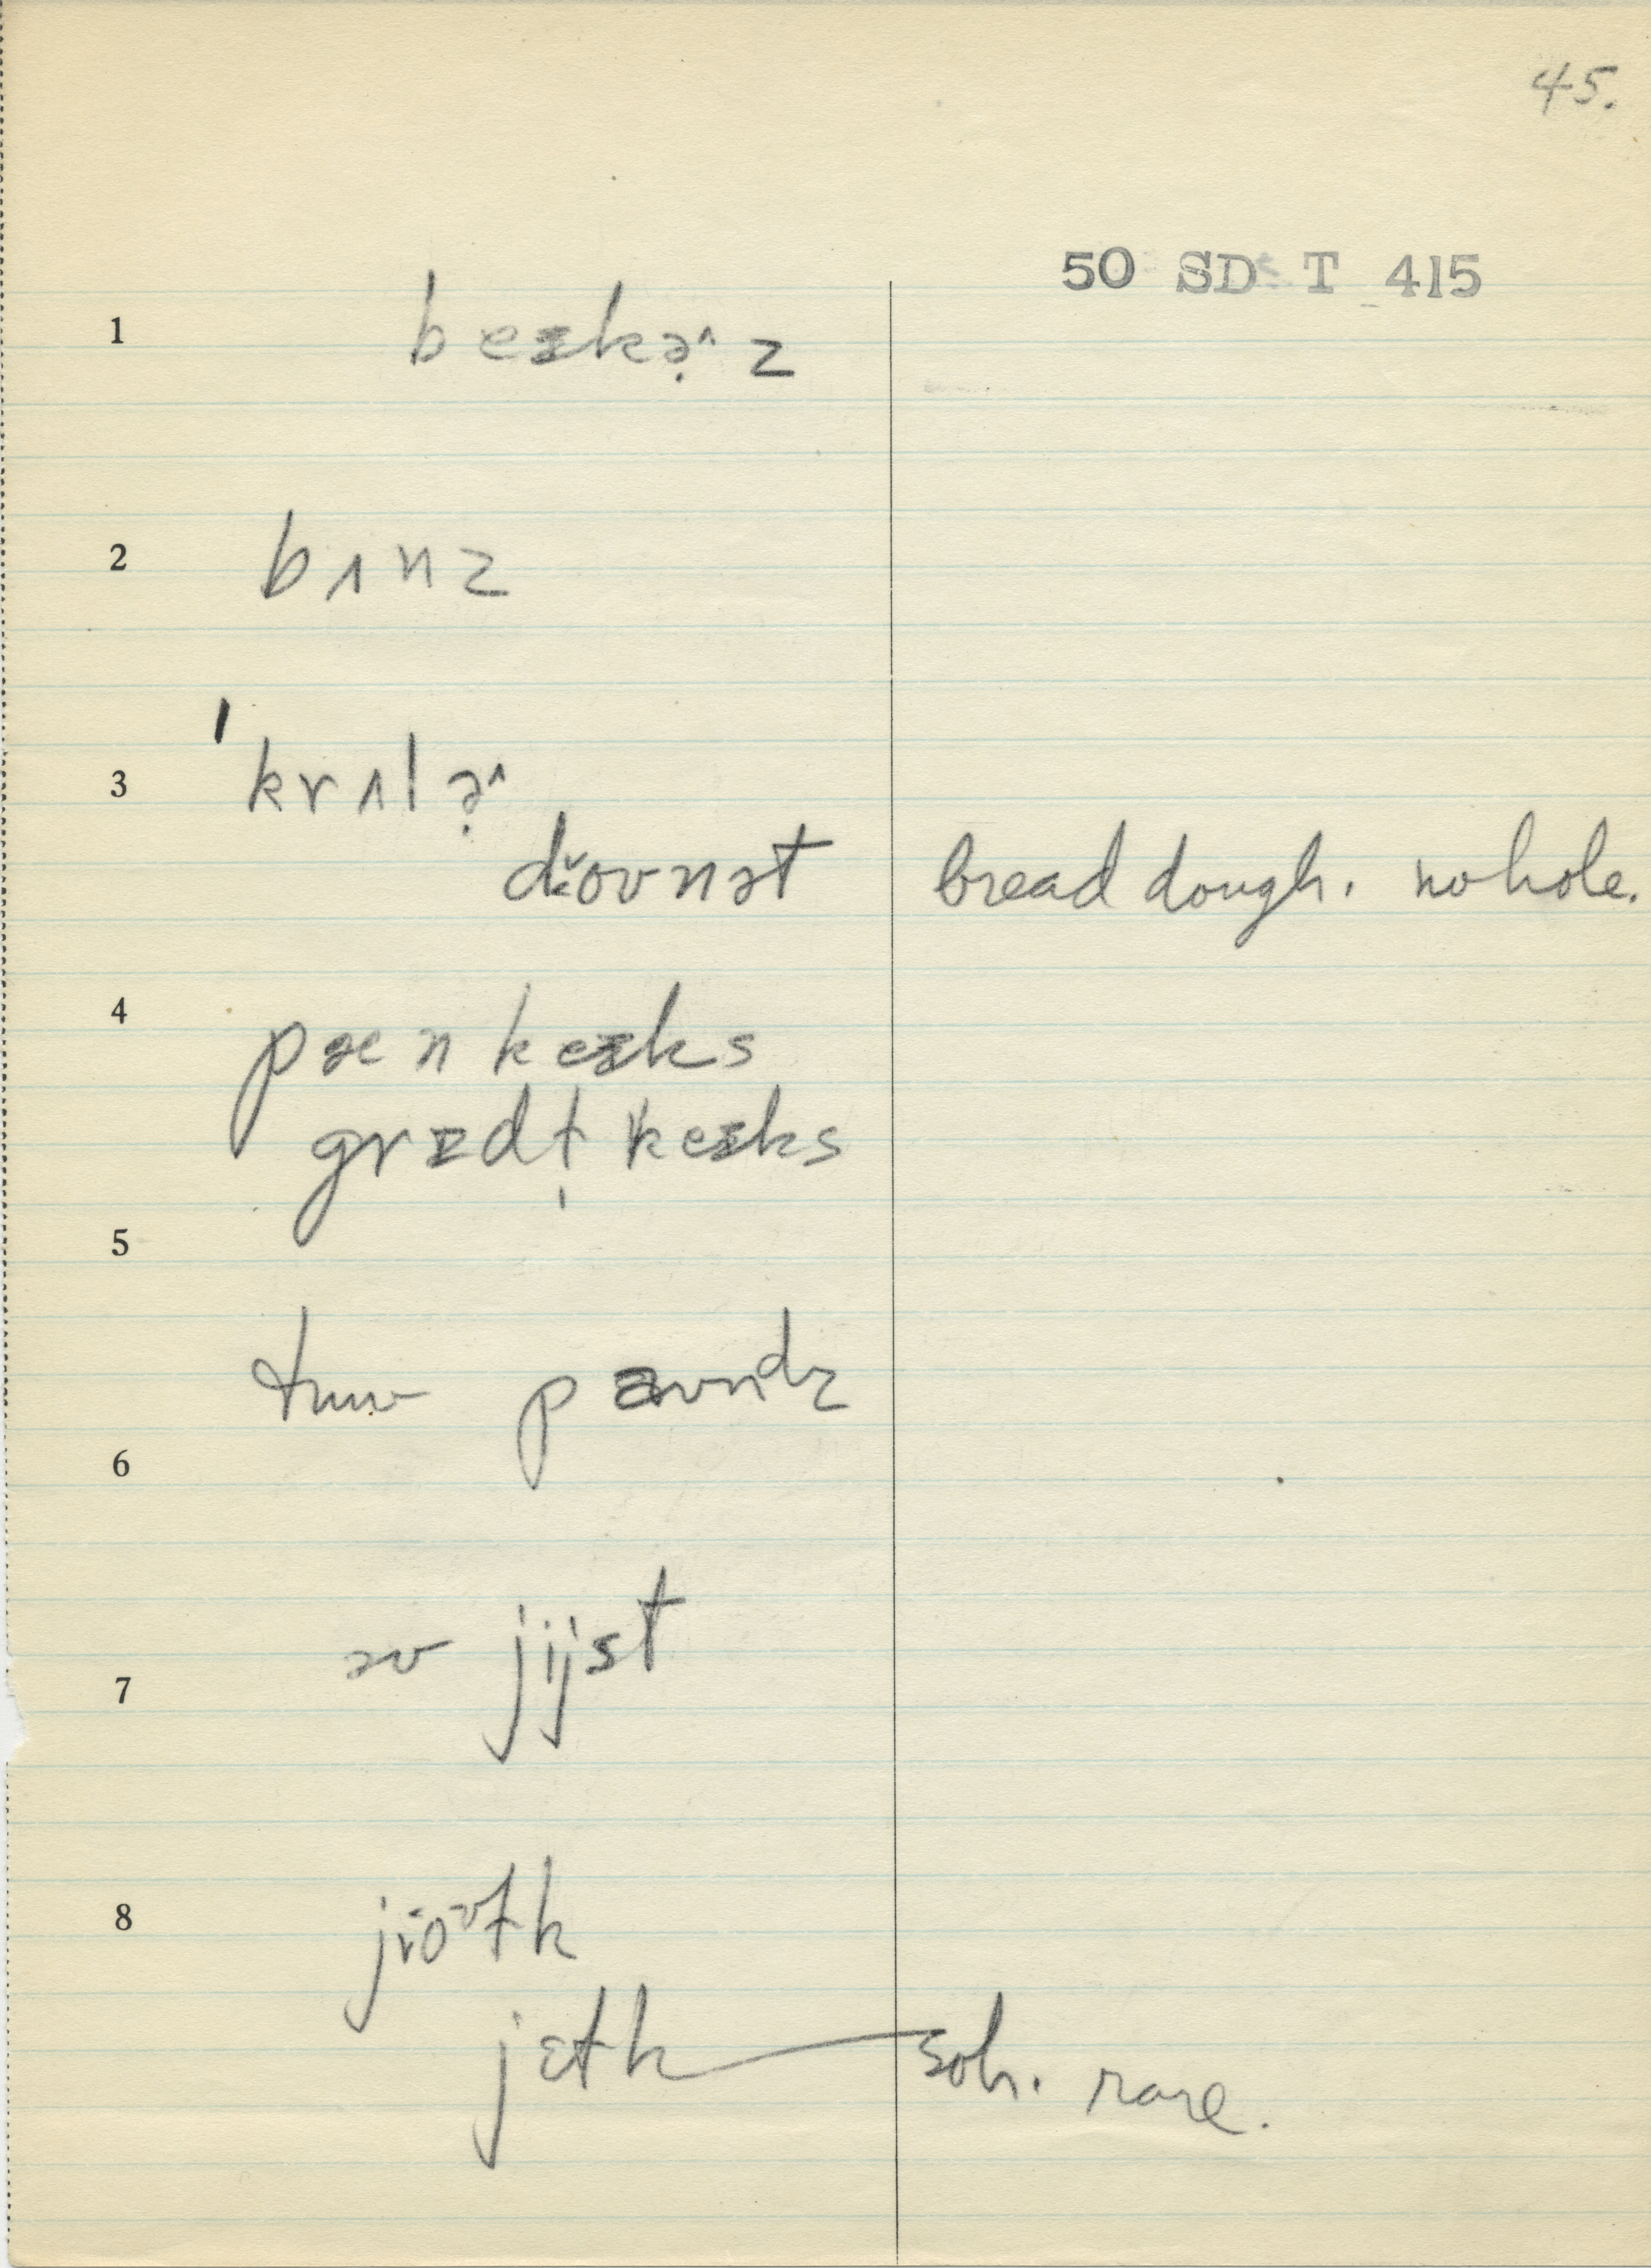 45.
50 SD T 415
1 beɪkə̣^z
2 bʌnz
3 'krʌlə̣^
doʊnət bread dough. no hole.
4 pænkeɪks
grɪdḷkeɪks
5
tuu paʊndz
6
əv jijst
7
8
jɛlk soh. rare.